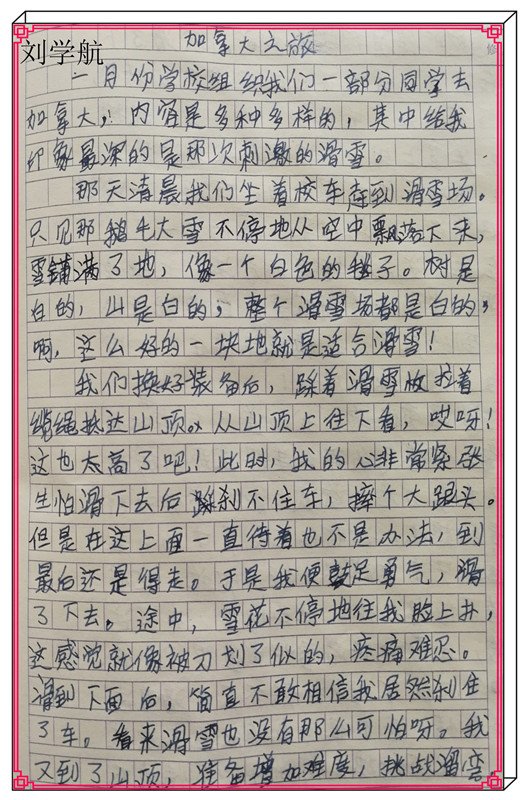 加拿大之旅
刘学航
一月份学校组织我们一部分同学去
加拿大,内容是多种多样的,其中给我
印象最深的是那次刺激的滑雪。
那天清晨我们坐着校车赶到滑雪场。
只见那鹅毛大雪不停地从空中飘落下来,
雪铺满了地,像一个白色的毯子。树是
白的,山是白的,整个滑雪场都是白的,
啊,这么好的一块地就是适合滑雪!
我们换好装备后,踩着滑雪板拉着
缆绳抵达山顶。从山顶上往下看,哎呀!
这也太高了吧!此时,我的心非常紧张
生怕滑下去后刹不住车,摔个大跟头。
但是在这上面一直待着也不是办法,到
最后还是得走。于是我便鼓足勇气,滑
了下去。途中,雪花不停地往我脸上扑,
这感觉就像被刀划了似的,疼痛难忍。
滑到下面后,简直不敢相信我居然刹住
了车。看来滑雪也没有那么可怕呀。我
又到了山顶,准备增加难度,挑战溜弯